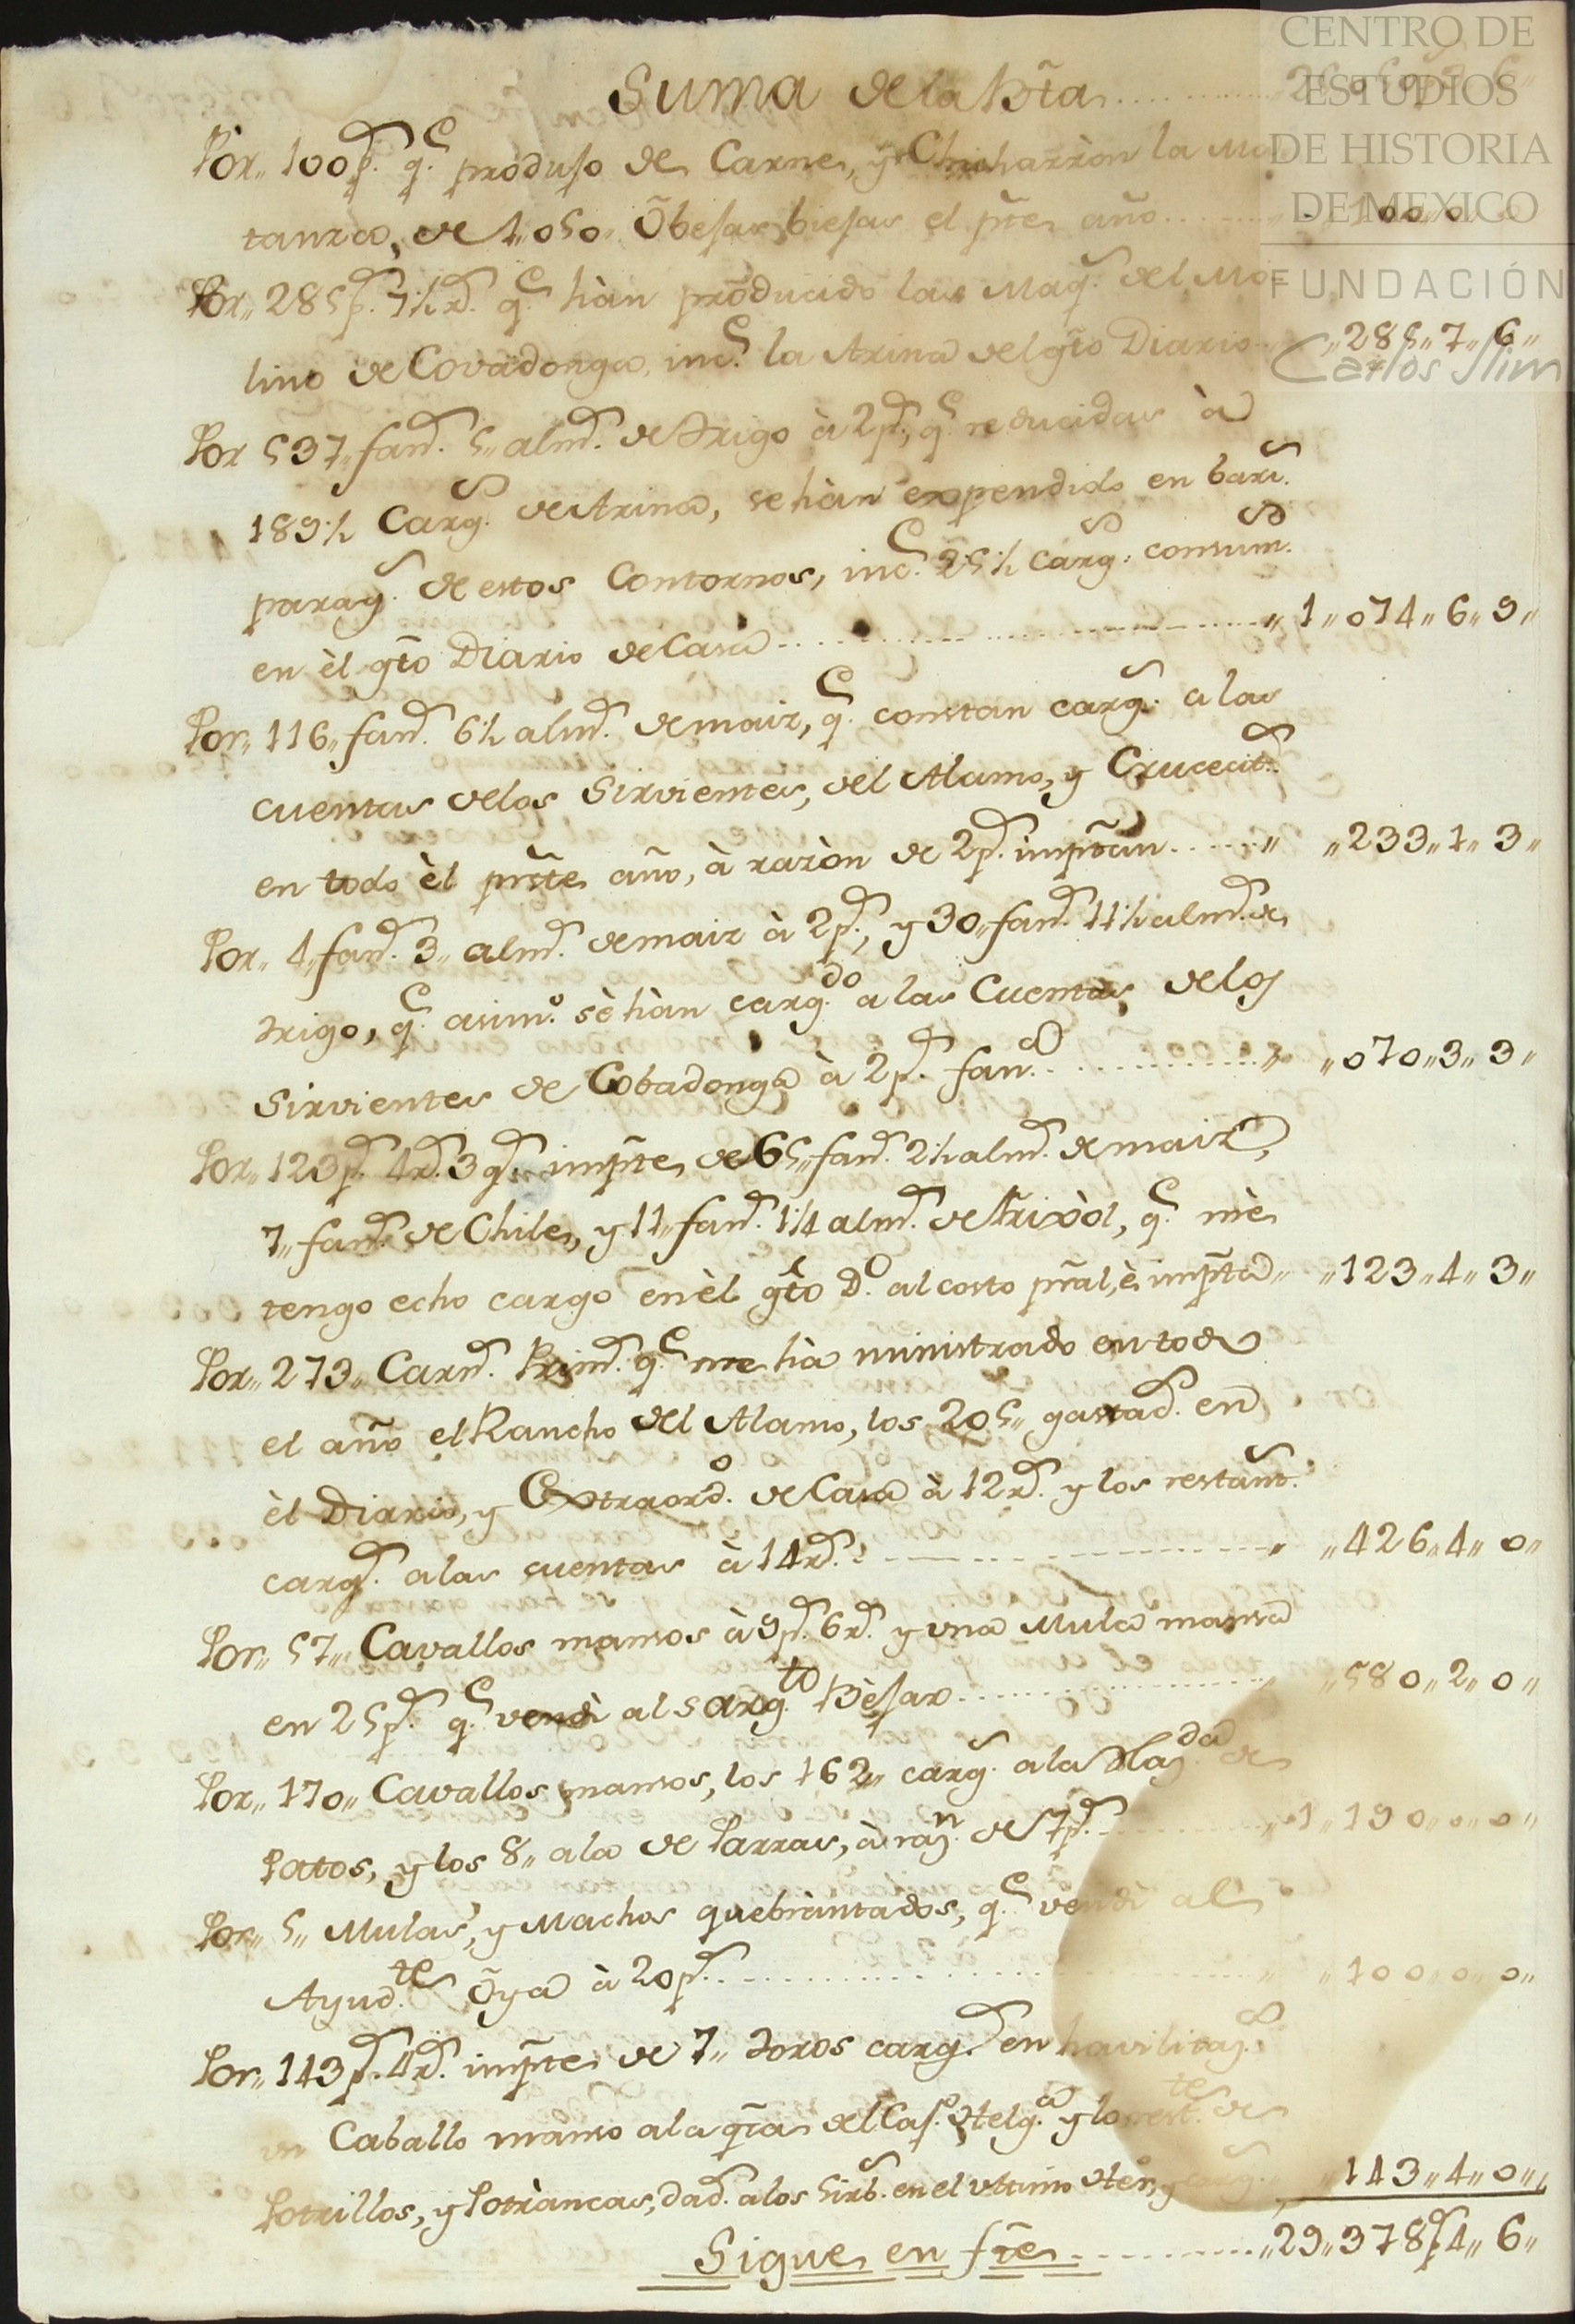 CENTRO DE
ESTUDIOS
DE HISTORIA
DE MEXICO
FUNDACIÓN
Carlos Slim
Suma de la Bta
Por,, 100 ps. qe. produjo de Carne, y Chicharròn la Ma-
tanza, de 1,,050,, Obejas biejas el pte. año ,, 100,, 0,, 0
Por,, 285 ps. 7½ rs. qe. hàn producido las Maqs. del Mo-
lino de Covadonga, ince. la Arina del gto Diario ,,285,,7,,6,,
Por 537,, fans. 5,, almds. de Trigo à 2 ps., qe. reducidas à
189½ Cargs. de Arina, se hàn expendido en bars.
parags. de estos Contornos, ince. 25½ cargs. consums.
en èl gto Diario de Casa ,,1,,074,,6,,9,,
Por,, 116,, fans. 6½ almds. de maiz, qe. constan cargs. a las
cuentas de los Sirvientes, del Alamo, y Crucecits.
en todo èl preste año, à razòn de 2 ps. imptan ,,233,,1,,3,,
Por,, 4,, fans. 3,, almds. de maiz à 2 ps., y 30,, fans. 11½ almds. de
trigo, qe. asimo. sè hàn cargdo. a las Cuentas, de los
Sirvientes de Cobadonga à 2 ps. fana. ,,070,,3,,3,,
Por,, 123 ps. 4 rs. 3 gs. impte de 65,, fans. 2½ almds. de maiz,
7,, fans. de Chile, y 11,, fans. 1¼ almds. de Frixòl, qe. me
tengo echo cargo en èl gto Do. al costo pral, è impta ,,123,,4,,3,,
Por,, 273,, Carns. Primls. qe. me hà ministrado en todo
el año el Rancho del Alamo, los 205,, gastads. en
èl Diario, y Extraordo. de Casa à 12 rs. y los restants.
cargs. a las cuentas à 14 rs. ,,426,,4,,0,,
Por,, 57,, Cavallos mansos à 9 ps. 6 rs. y una Mula mansa
en 25 ps. qe. vendì al Sargto. Bèjar ,,580,,2,,0,,
Por,, 170,, Cavallos mansos, los 162,, cargs. a la Hazda. de
Patos, y los 8,, a la de Parras, à razn. de 7 ps. ,,1,,190,,0,,0,,
Por,, 5,, Mulas, y Machos quebràntados, qe. vendì al
Ayudte. Oya à 20 ps. ,,100,,0,,0,,
Por,, 143 ps. 4 rs. impte de 7,, Toros cargs. en havilitazs.
un Caballo manso a la qta del Caso. y los restte. de
Potrillos, y Potràncas, dads. a los Sirbs. en el ultimo ,,143,,4,,0,,
Sigue en fte ,,29,,378 ps 4,,6,,